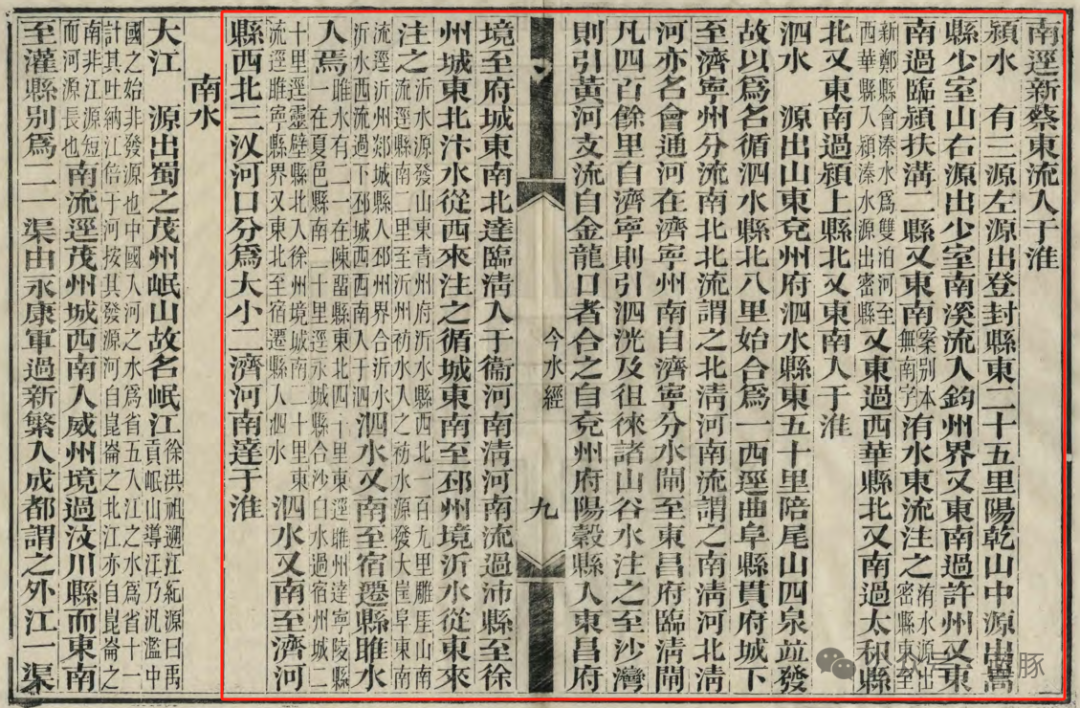 南逕新蔡東流入于淮
潁水　有三源左源出登封縣東二十五里陽乾山中源出嵩
縣少室山右源出少室南溪流入鈞州界又東南過許州又東
南過臨潁扶溝二縣又東南案别本無南字洧水東流注之洧水源出密縣東至
新鄭縣會溱水爲雙泊河至西華縣入潁溱水源出密縣又東過西華縣北又南過太和縣
北又東南過潁上縣北又東南入于淮
泗水　源出山東兗州府泗水縣東五十里陪尾山四泉竝發
故以爲名循泗水縣北八里始合爲一西逕曲阜縣貫府城下
至濟寧州分流南北北流謂之北淸河南流謂之南淸河北淸
河亦名會通河在濟寧州南自濟寧分水閘至東昌府臨淸閘
凡四百餘里自濟寧則引泗洸及徂徠諸山谷水注之至沙灣
則引黃河支流自金龍口者合之自兗州府陽穀縣入東昌府
今水經　九
境至府城東南北達臨淸入于衞河南淸河南流過沛縣至徐
州城東北汴水從西來注之循城東南至邳州境沂水從東來
注之沂水源發山東青州府沂水縣西北一百九里雕厓山南流逕縣南二里至沂州祊水入之祊水源發大崖阜東南
流逕沂州郯城縣入邳州界合沂水沂水西流過下邳城西西南入于泗泗水又南至宿遷縣睢水
入焉睢水有二一在陳留縣東北四十里東逕睢州達寧陵縣一在夏邑縣南二十里逕永城縣合沙白水過宿州城二
十里逕靈壁縣北入徐州境城南二十里東流逕睢寧縣界又東北至宿遷縣入泗水泗水又南至濟河
縣西北三汊河口分爲大小二濟河南達于淮
南水
大江　源出蜀之茂州岷山故名岷江徐洪祖遡江紀源曰禹貢岷山導江乃汎濫中
國之始非發源也中國入河之水爲省五入江之水爲省十一計其吐納江倍于河按其發源河自崑崙之北江亦自崑崙之
南非江源短而河源長也南流逕茂州城西南入威州境過汶川縣而東南
至灌縣别爲二一渠由永康軍過新繁入成都謂之外江一渠
豚